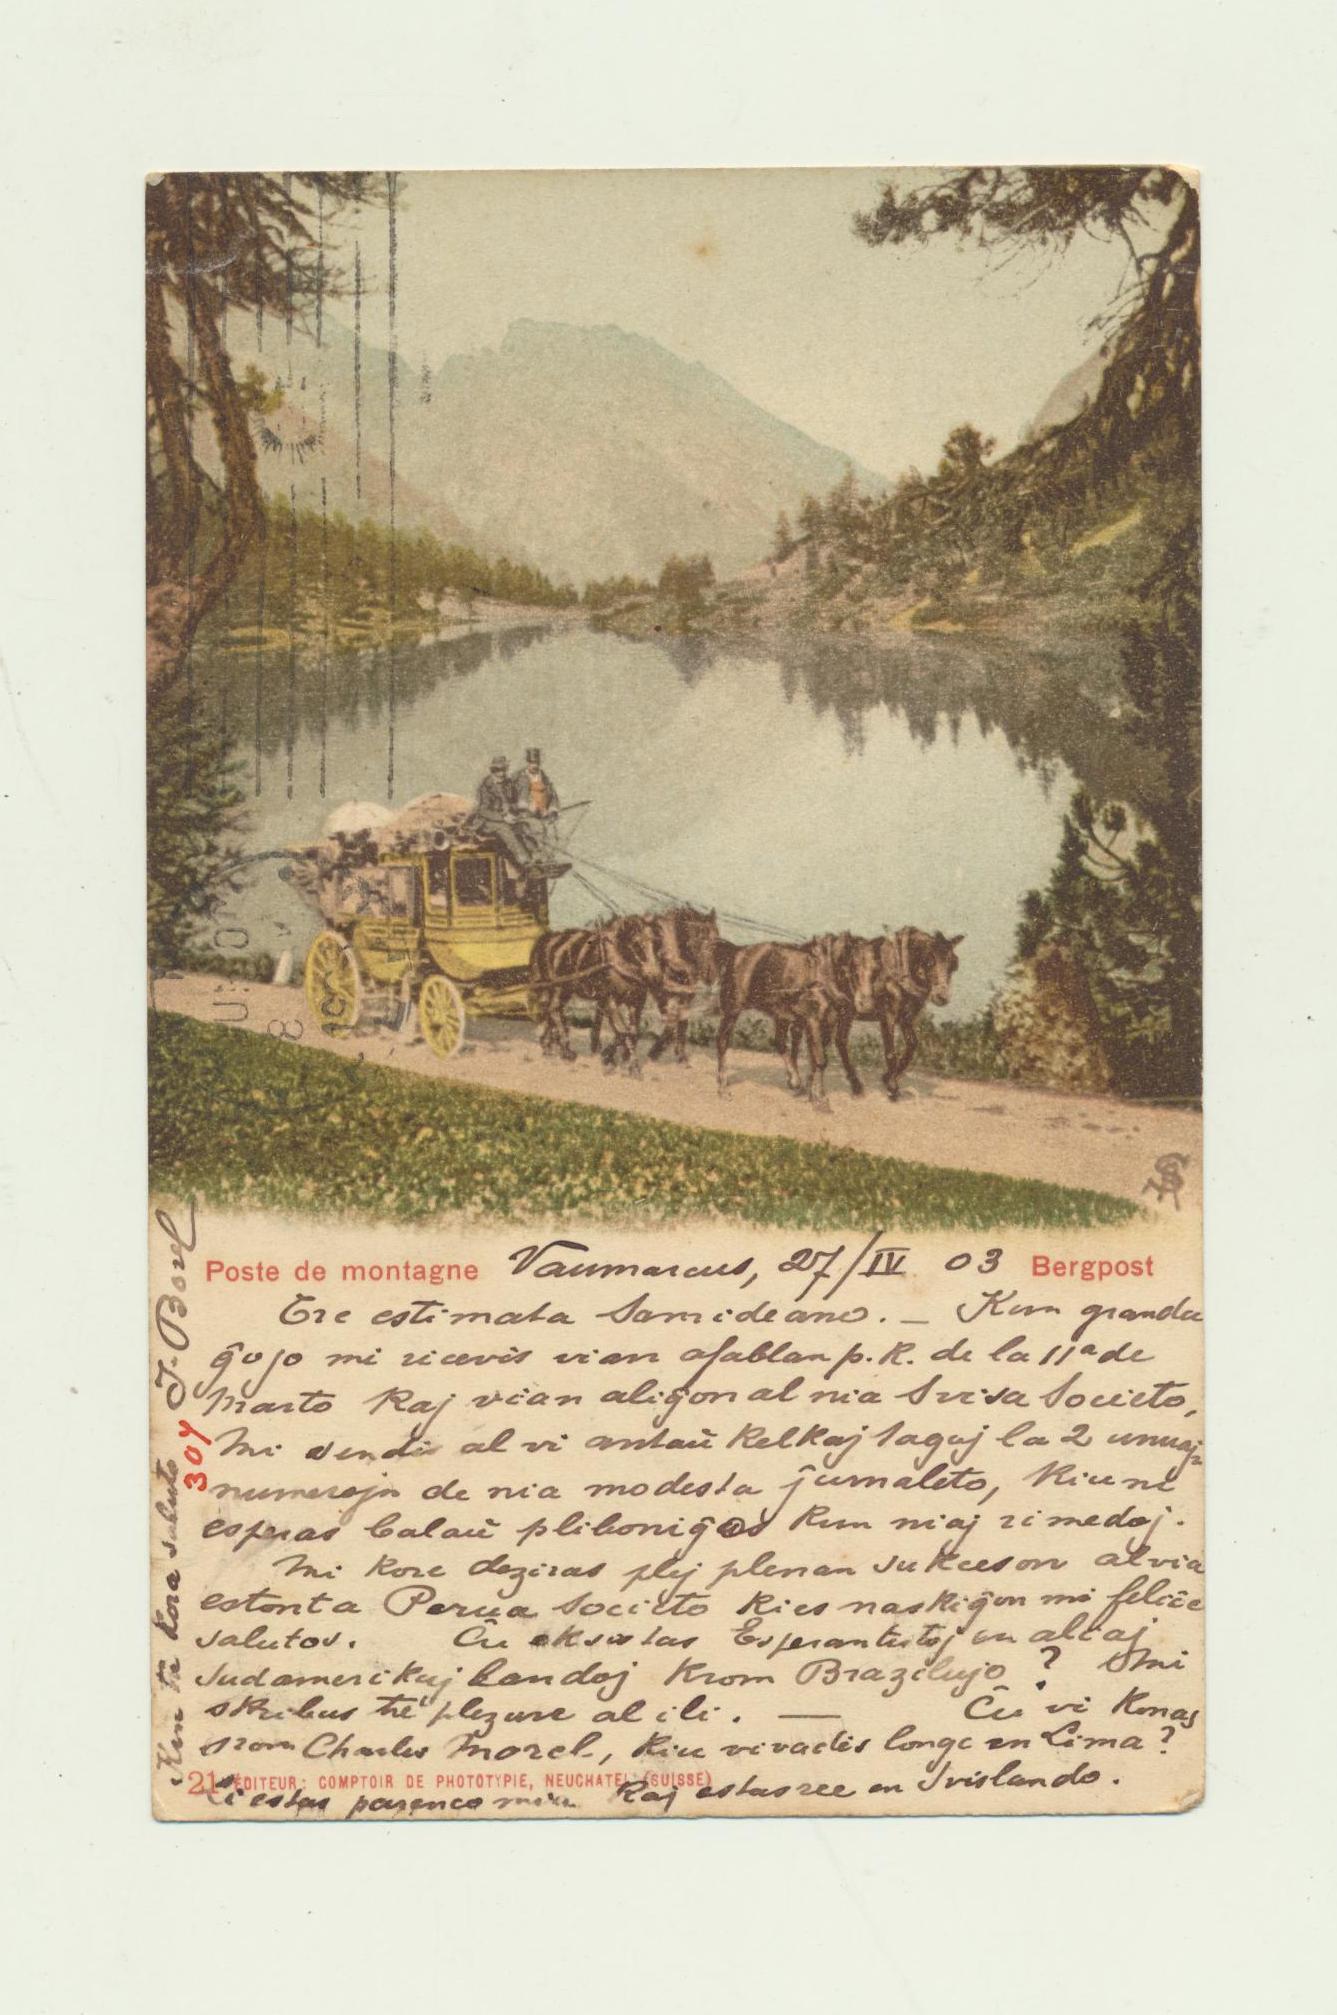 Poste de montagne Vaumarcus, 27/IV 03 Bergpost
Tre estimata Samideano. — Kun granda
ĝojo mi ricevis vian afablan p.k. de la 11ª de
Marto kaj vian aliĝon al nia Svisa Societo,
Mi sendis al vi antaŭ kelkaj tagoj la 2 unuajn
numerojn de nia modesta ĵurnaleto, kiu ni
esperas balaŭ plibonigos kun niaj rimedoj.
Mi kore deziras plej plenan sukceson al via
estonta Perua Societo kies naskiĝon mi feliĉe
salutos. Ĉu eksistas Esperantistoj en aliaj
Sudamerikaj landoj krom Brazilujo? Mi
skribus tre plezure al ili. — Ĉu vi konas
Charles Morel, kiu vivadis longe en Lima?
Li estas parenco mia kaj estas en Svislando.
21 EDITEUR: COMPTOIR DE PHOTOTYPIE, NEUCHATEL (SUISSE)
Kun tre kora saluto J. Borel
304